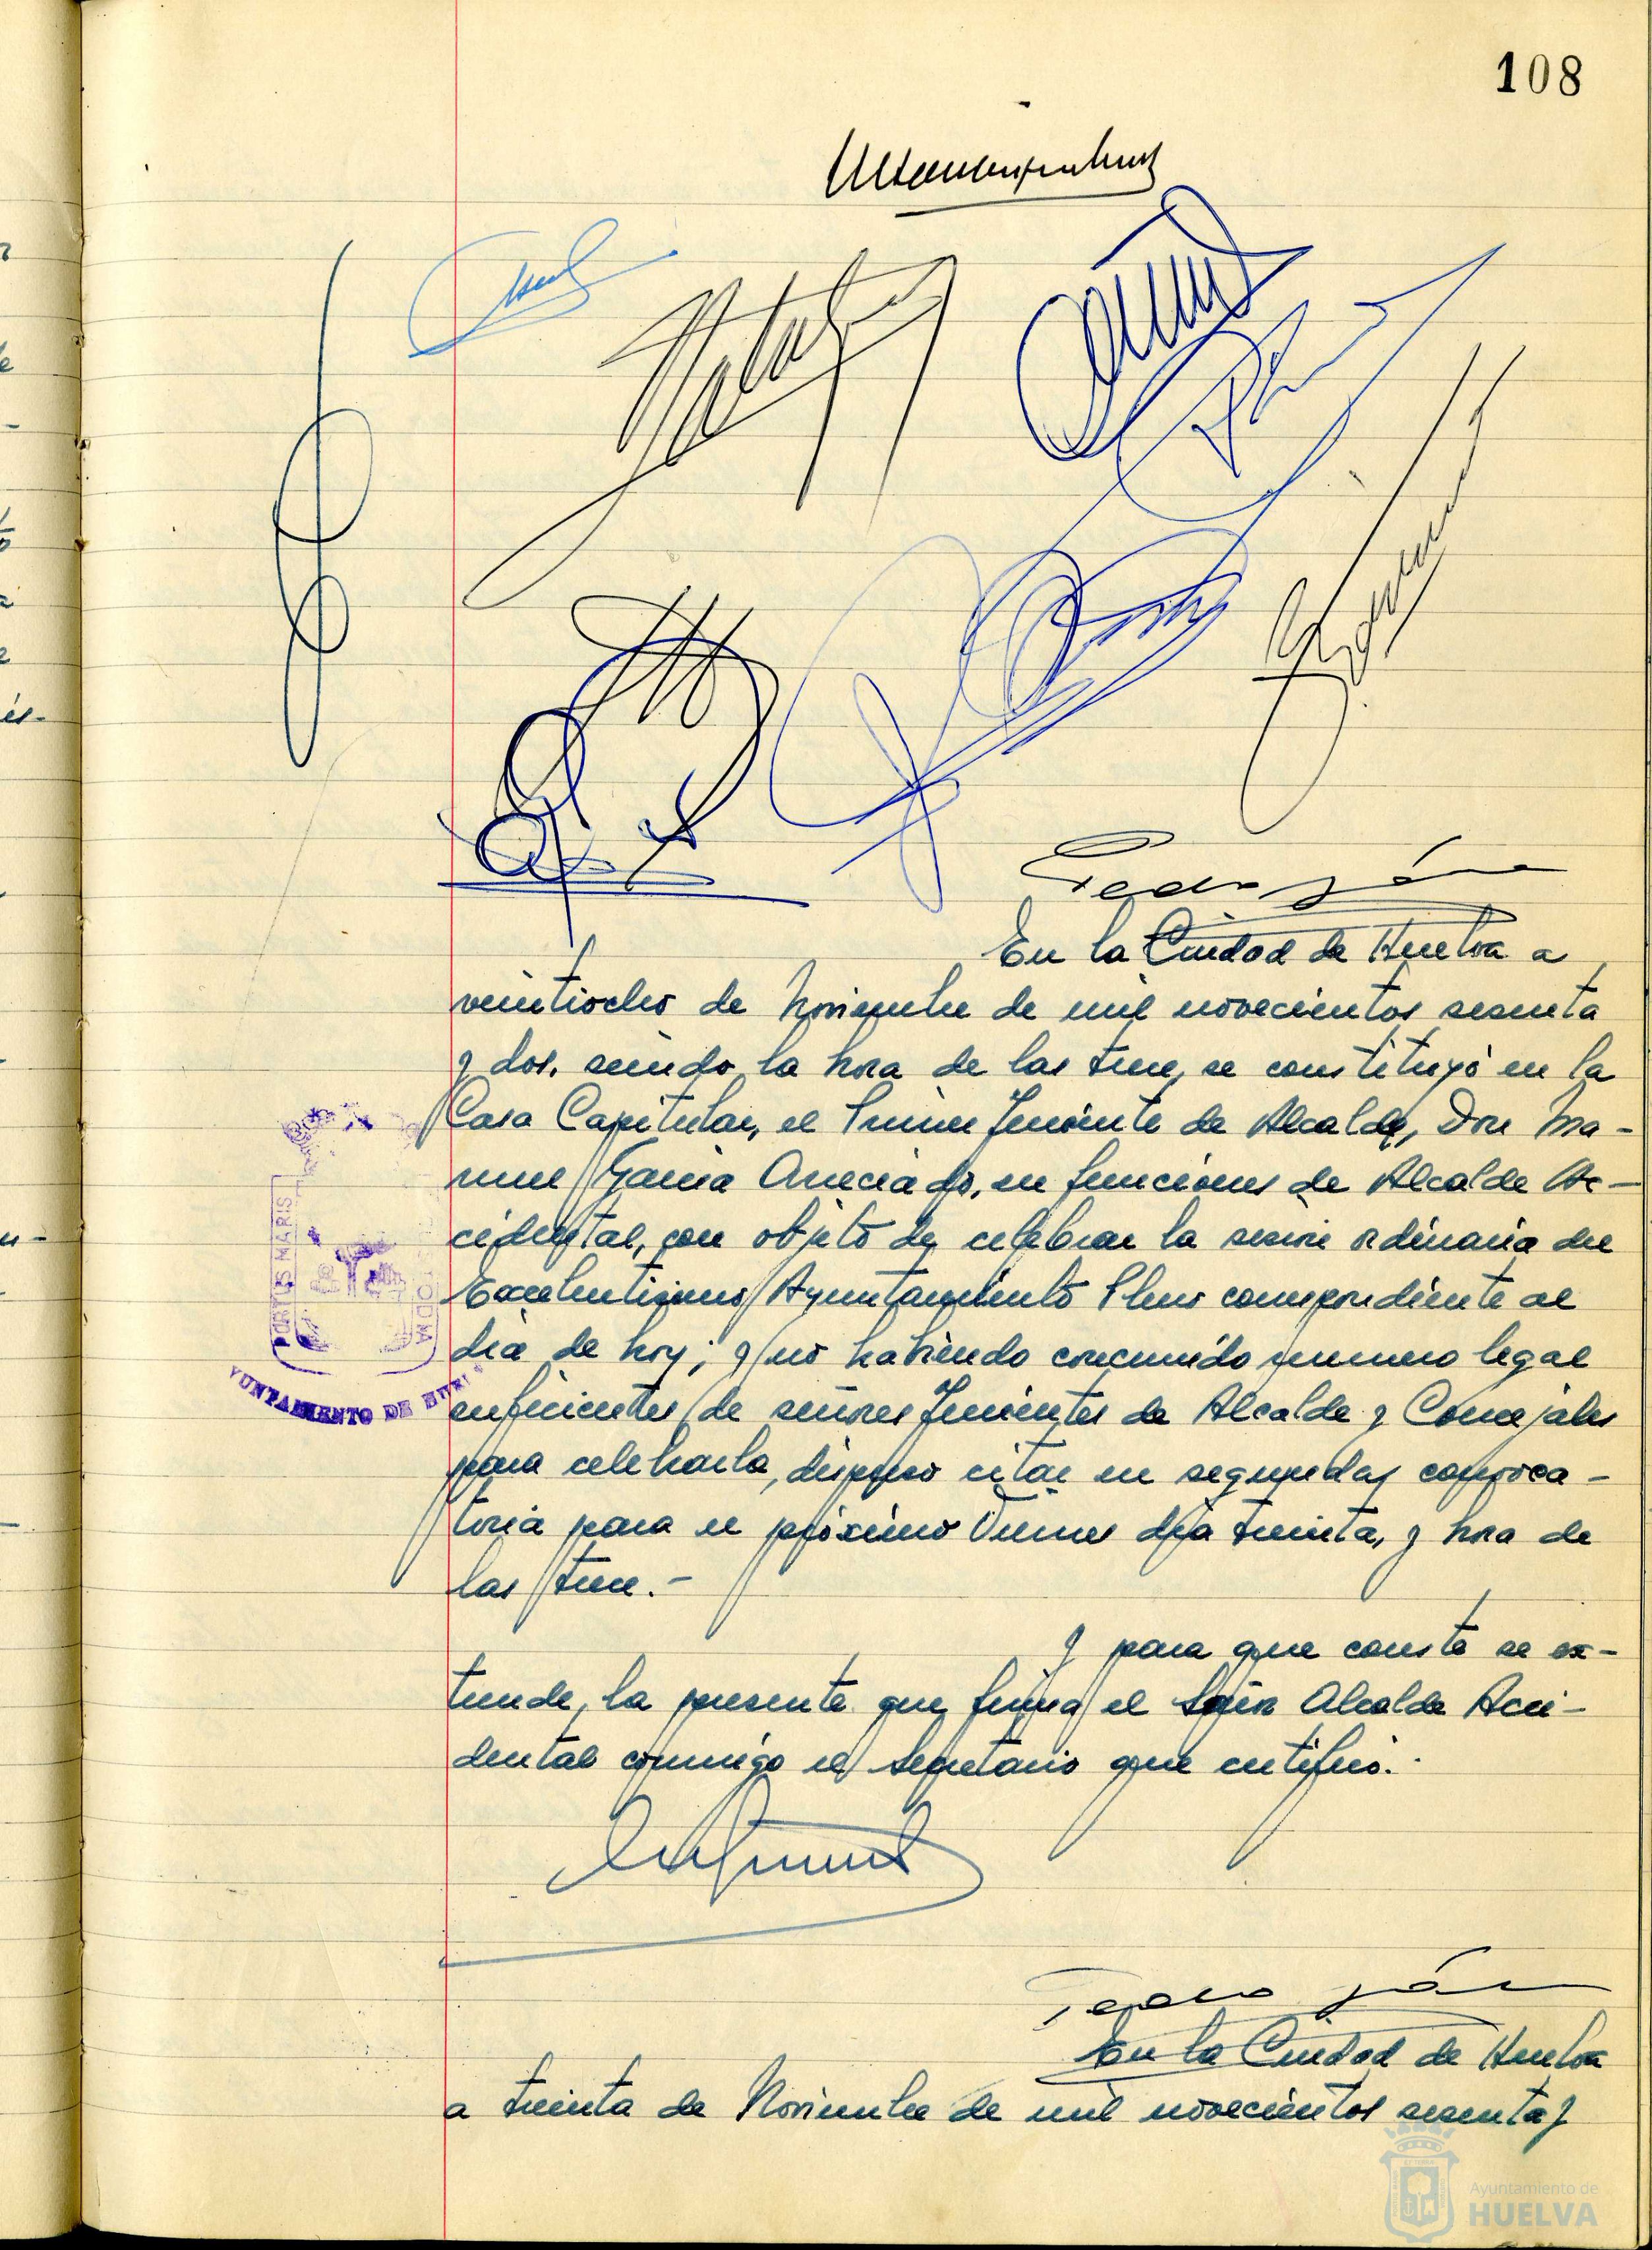 108
Pedro Gón
En la Ciudad de Huelva a
veintiocho de Noviembre de mil novecientos sesenta
y dos, siendo la hora de las trece, se constituyó en la
Casa Capitular, el Primer Teniente de Alcalde, Don Ma-
nuel García Aneciado, en funciones de Alcalde Ac-
cidental, con objeto de celebrar la sesión ordinaria del
Excelentísimo Ayuntamiento Pleno correspondiente al
día de hoy; y no habiendo concurrido número legal
suficientes de señores Tenientes de Alcalde y Concejales
para celebrarla, dispuso citar en segunda convoca-
toria para el próximo Viernes día treinta, y hora de
las trece.-
Y para que conste se ex-
tiende, la presente que firma el Señor Alcalde Acci-
dental conmigo el Secretario que certifico.-
Pedro Gón
En la Ciudad de Huelva
a treinta de Noviembre de mil novecientos sesenta y
PORTUS MARIS
AYUNTAMIENTO DE HUELVA
Ayuntamiento de
HUELVA